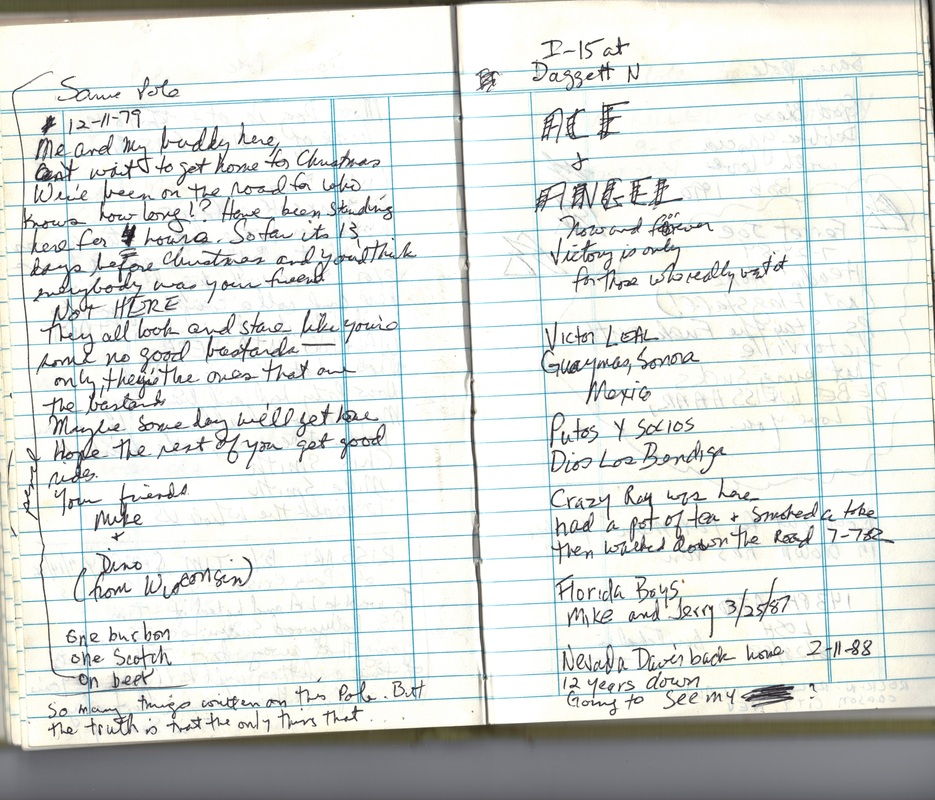 Same Pole
12-11-79
Me and my buddy here,
cant wait to get home for Christmas
We've been on the road for who
knows how long!? Have been standing
here for 4 hours. So far its 13
days before Christmas and you'd think
everybody was your friend
Not HERE
They all look and stare like you're
some no good bastards
only, they're the ones that are
the bastards
Maybe some day we'll get
Hope the rest of you get good
rides.
Your friends
Mike
+
Dino
(from Wisconsin)
one burbon
one Scotch
on beer
So many things written on this Pole. But
the truth is that the only thing that . . .
I-15 at
Daggett N
ACE
&
ANGEL
Now and forever
Victory is only
for those who really want it
Victor LEAL
Guaymas, Sonora
Mexico
Putos Y Socios
Dios Los Bendiga
Crazy Ray was here
had a pot of tea + smoked a toke
then walked down the Road 7-7-82
Florida Boys
Mike and Jerry 3/25/87
Nevada Davis back home 2-11-88
12 years down
Going to see my ?